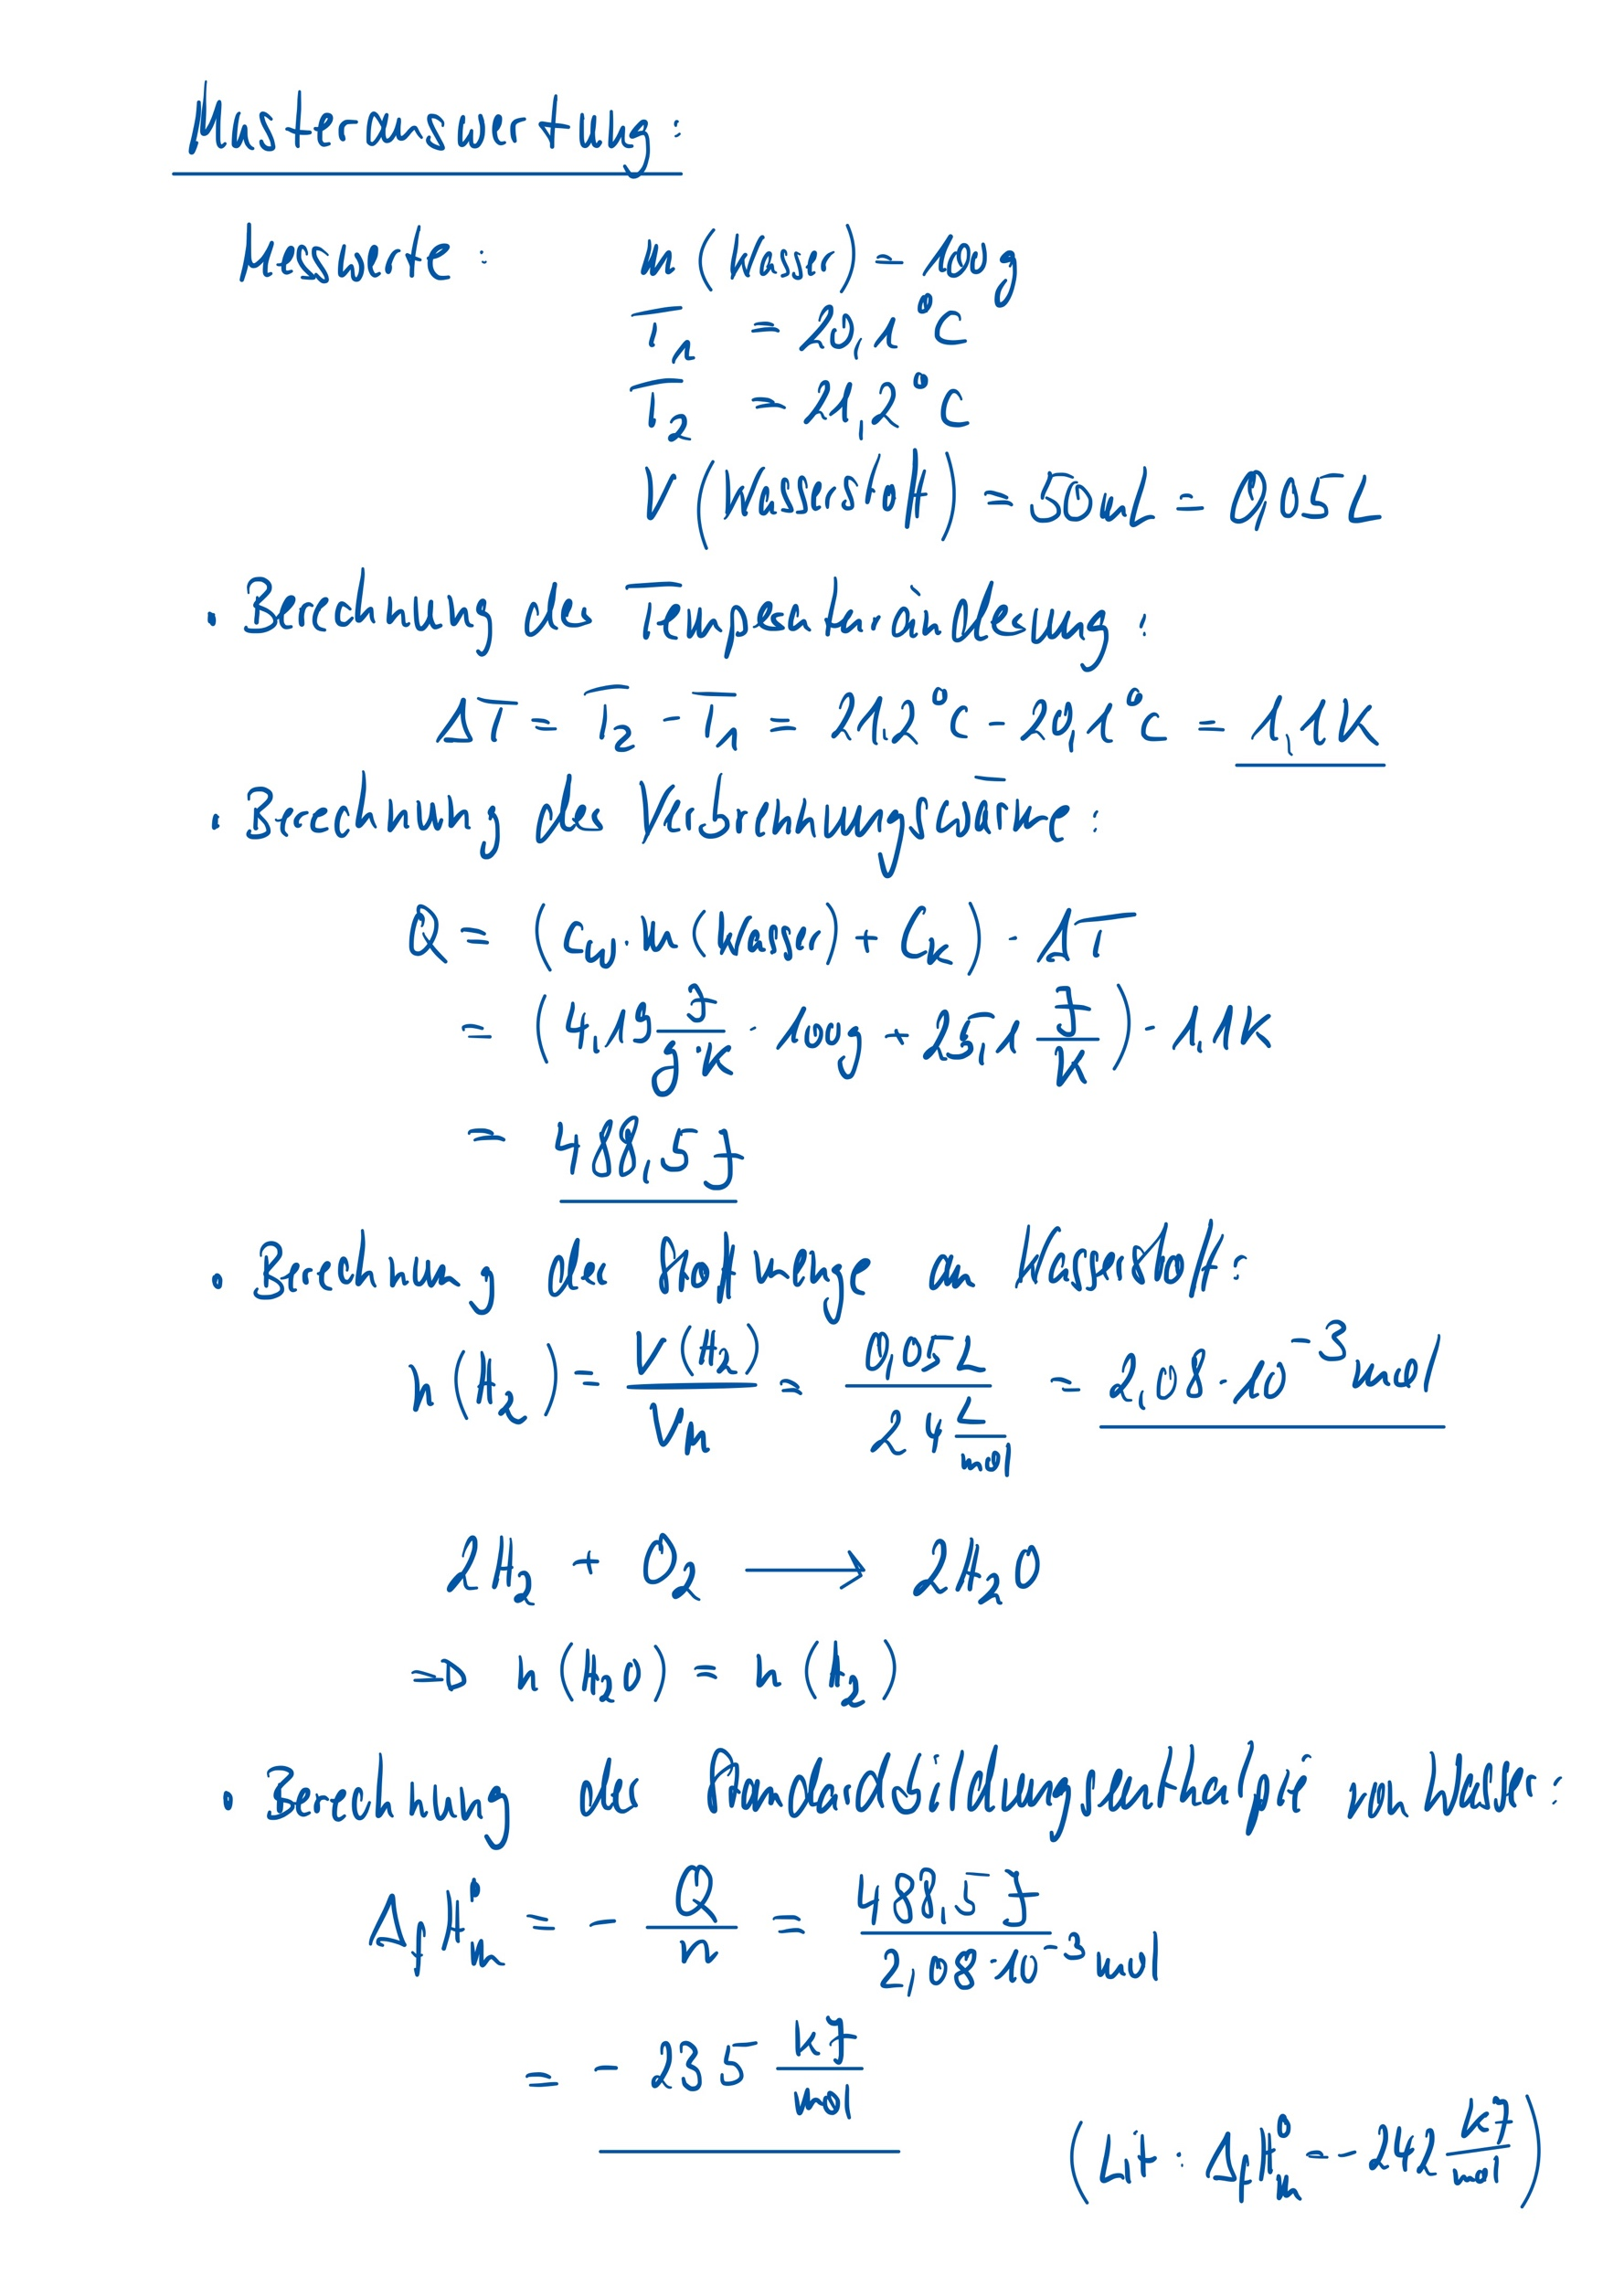 Musterauswertung:
Messwerte: m(Wasser) = 100g
T₁ = 20,1°C
T₂ = 21,2°C
V(Wasserstoff) = 50mL = 0,05L
• Berechnung der Temperaturänderung:
ΔT = T₂ - T₁ = 21,2°C - 20,1°C = 1,1K
• Berechnung der Verbrennungswärme:
Q = (c_W · m(Wasser) + C_K) · ΔT
= (4,19 J/(g·K) · 100g + 25,1 J/K) · 1,1K
= 488,5 J
• Berechnung der Stoffmenge an Wasserstoff:
n(H₂) = V(H₂)/V_m = 0,05L/(24 L/mol) = 2,08·10⁻³ mol
2H₂ + O₂ ⟶ 2H₂O
⇒ n(H₂O) = n(H₂)
• Berechnung der Standardbildungsenthalpie von Wasser:
Δ_fH⁰_m = - Q/n = 488,5 J/(2,08·10⁻³ mol)
= - 235 kJ/mol
(Lit: Δ_fH⁰_m = -242 kJ/mol)